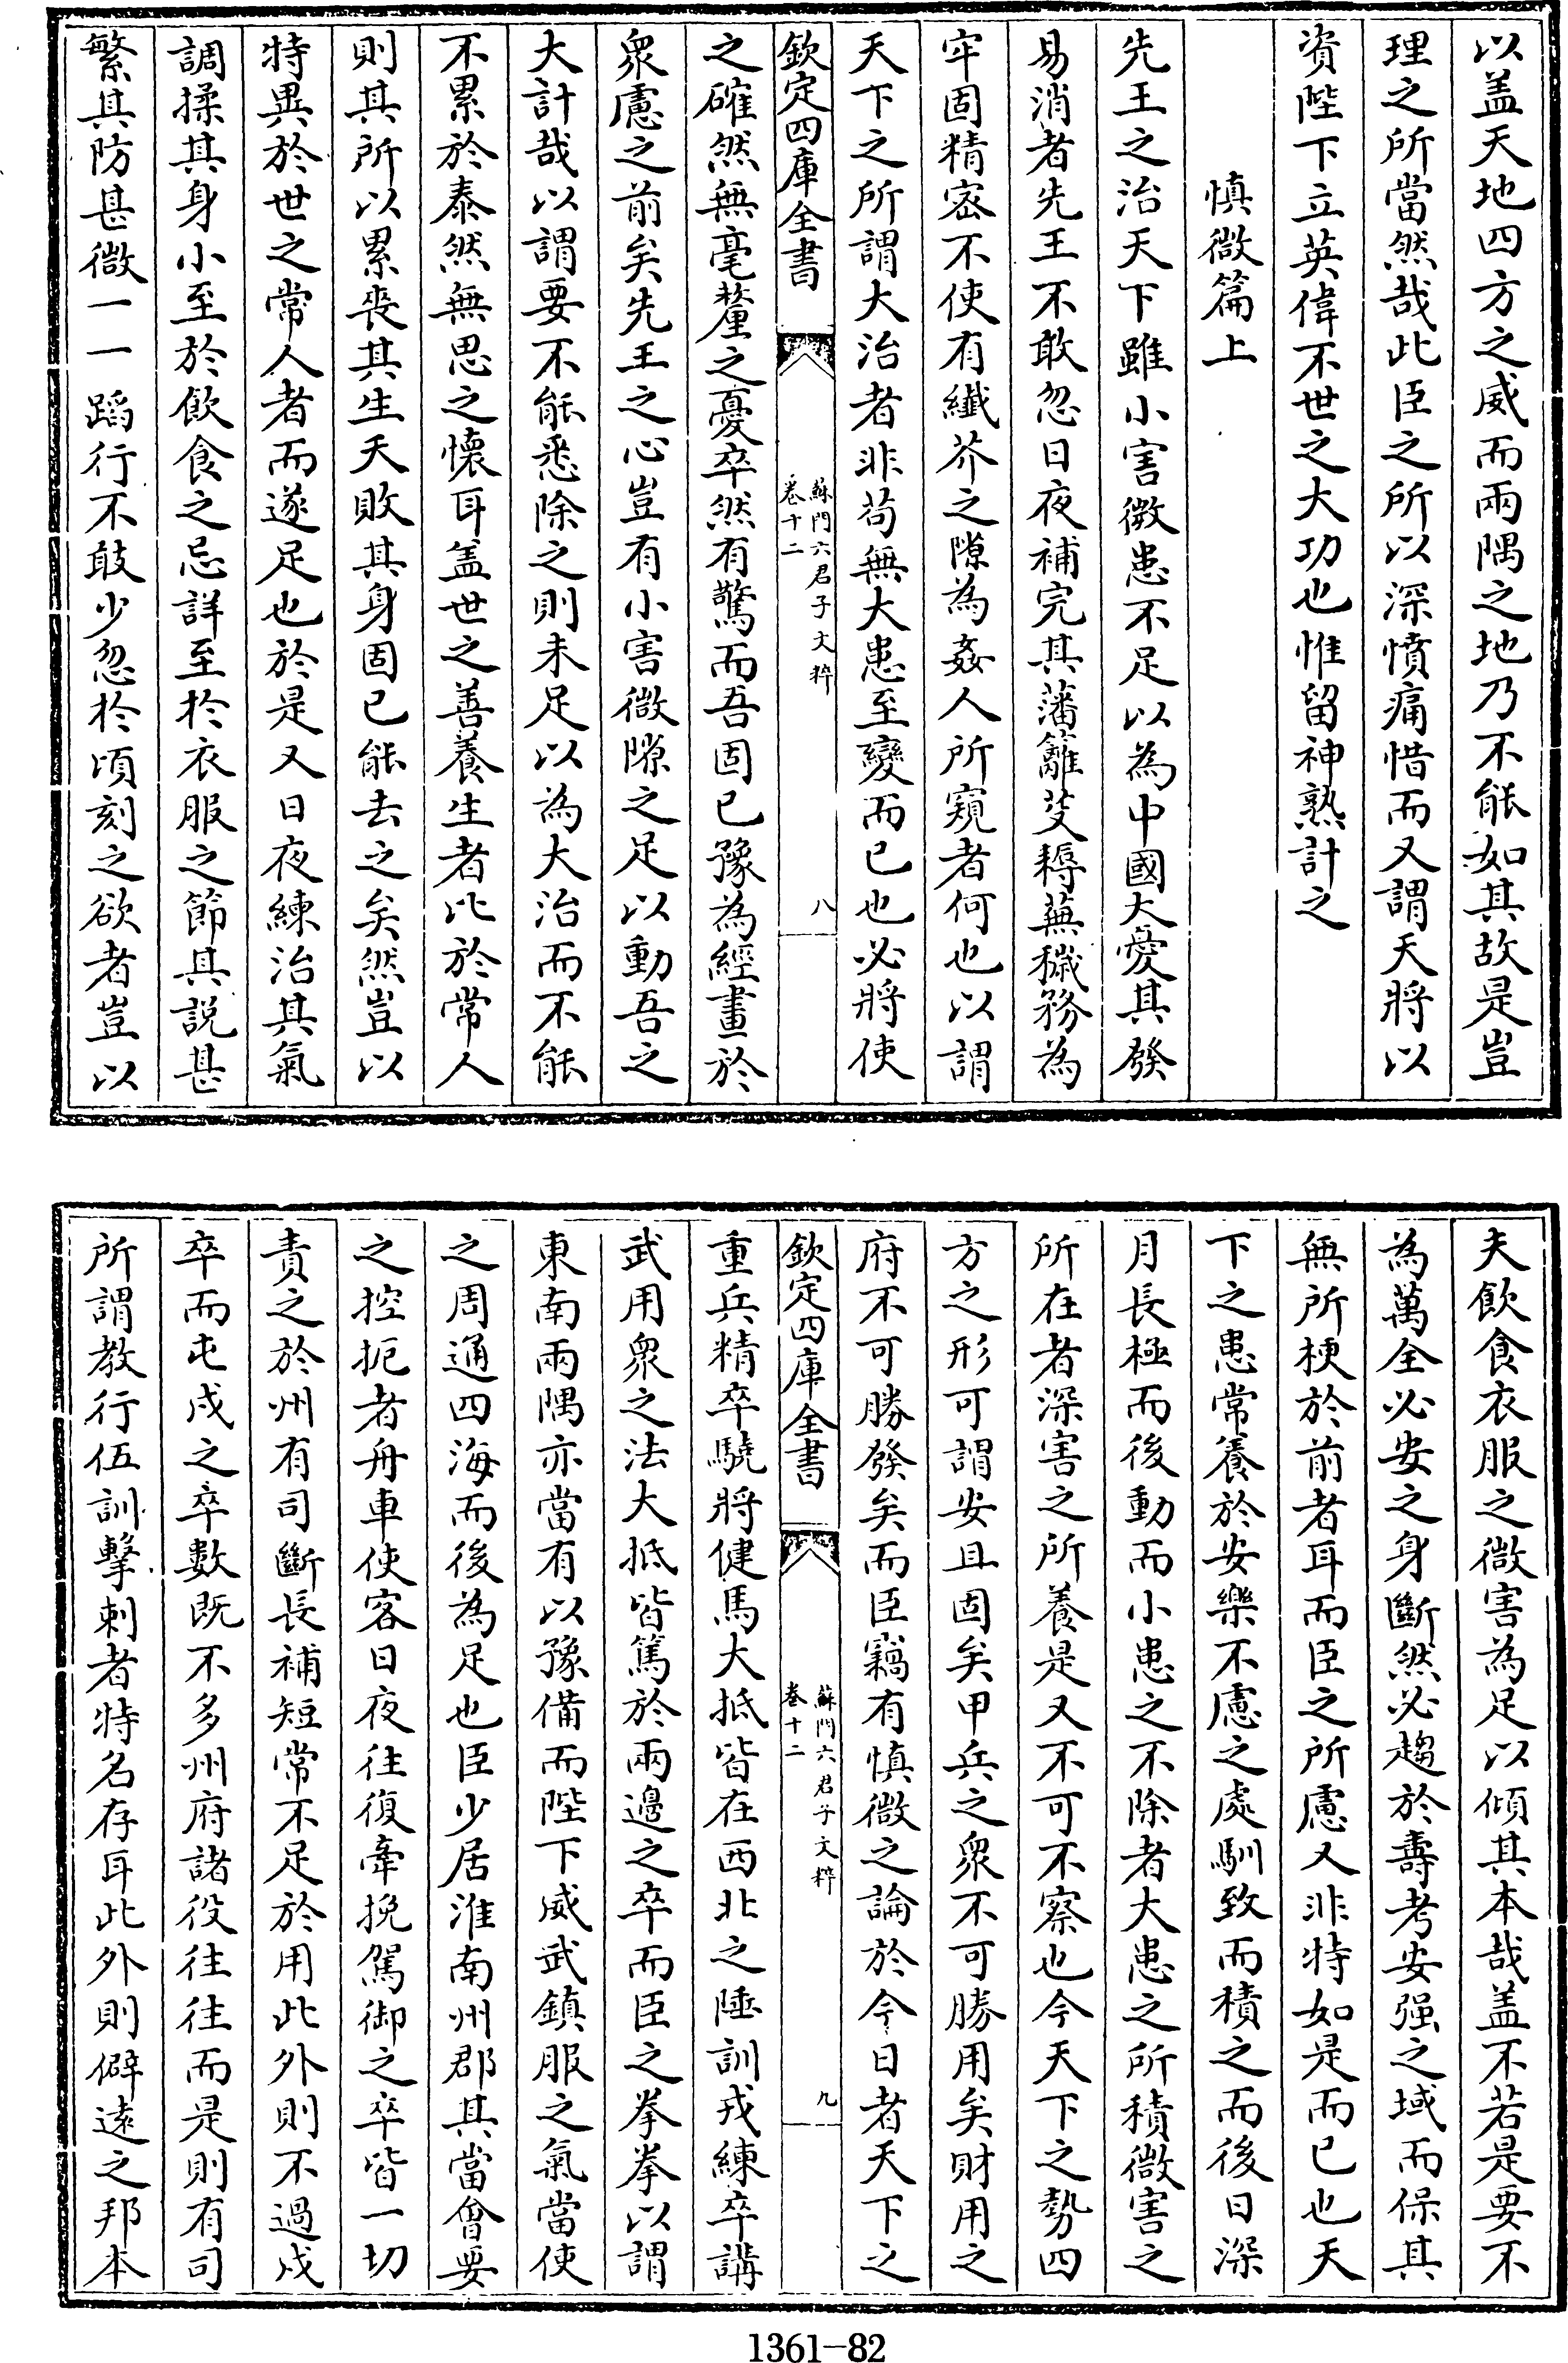 以盖天地四方之威而兩隅之地乃不能如其故是豈
理之所當然哉此臣之所以深憤痛惜而又謂天將以
資陛下立英偉不世之大功也惟留神熟計之
慎微篇上
先王之治天下雖小害微患不足以為中國大憂其發
易消者先王不敢忽日夜補完其藩籬芟耨蕪穢務為
牢固精宻不使有纖芥之隙為姦人所窺者何也以謂
天下之所謂大治者非苟無大患至變而已也必將使
欽定四庫全書
蘇門六君子文粹
卷十二
八
之確然無毫釐之憂卒然有驚而吾固已豫為經畫於
衆慮之前矣先王之心豈有小害微隙之足以動吾之
大計哉以謂要不能悉除之則未足以為大治而不能
不累於泰然無思之懷耳盖世之善養生者比於常人
則其所以累喪其生夭敗其身固已能去之矣然豈以
特異於世之常人者而遂足也於是又日夜練治其氣
調揉其身小至於飲食之忌詳至於衣服之節其説甚
繁其防甚微一一蹈行不敢少忽於頃刻之欲者豈以
夫飲食衣服之微害為足以傾其本哉盖不若是要不
為萬全必安之身斷然必趨於壽考安强之域而保其
無所梗於前者耳而臣之所慮又非特如是而已也天
下之患常養於安樂不慮之處馴致而積之而後日深
月長極而後動而小患之不除者大患之所積微害之
所在者深害之所養是又不可不察也今天下之勢四
方之形可謂安且固矣甲兵之衆不可勝用矣財用之
府不可勝發矣而臣竊有慎微之論於今日者天下之
欽定四庫全書
蘇門六君子文粹
卷十二
九
重兵精卒驍將健馬大抵皆在西北之陲訓戎練卒講
武用衆之法大抵皆篤於兩邊之卒而臣之拳拳以謂
東南兩隅亦當有以豫備而陛下威武鎮服之氣當使
之周通四海而後為足也臣少居淮南州郡其當㑹要
之控扼者舟車使客日夜往復牽挽駕御之卒皆一切
責之於州有司斷長補短常不足於用此外則不過戍
卒而屯戍之卒數既不多州府諸役往往而是則有司
所謂教行伍訓擊刺者特名存耳此外則僻遠之邦本
1361-82